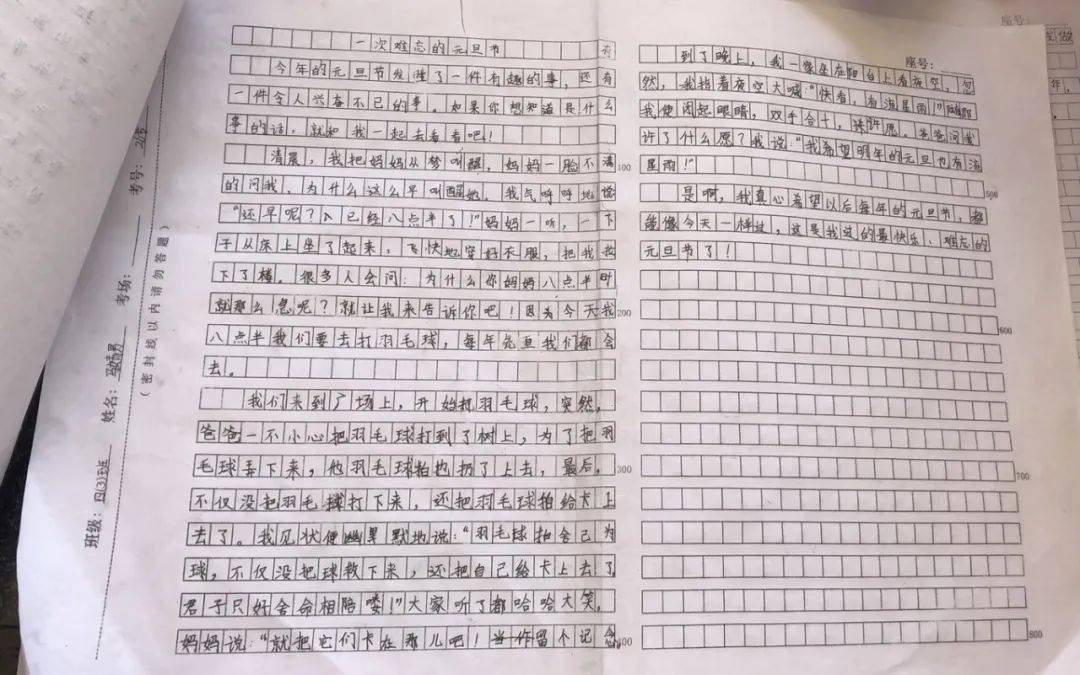 一次难忘的元旦节
今年的元旦节发生了一件有趣的事，还有
一件令人兴奋不已的事。如果你想知道是什么
事的话，就和我一起去看看吧！
清晨，我把妈妈从梦叫醒，妈妈一脸不满
的问我，为什么这么早叫醒她，我气呼呼地
“还早呢？已经八点半了！”妈妈一听，一下
子从床上坐了起来，飞快地穿好衣服，把我拉
下了楼。很多人会问：为什么你妈妈八点半
就那么急呢？就让我来告诉你吧！因为今天我
八点半我们要去打羽毛球，每年元旦我们都会
去。
我们来到广场上，开始打羽毛球，突然，
爸爸一不小心把羽毛球打到了树上，为了把羽
毛球弄下来，他羽毛球拍也扔了上去，最后，
不仅没把羽毛球打下来，还把羽毛球拍给卡上
去了。我见状便幽默地说：“羽毛球拍舍己为
球，不仅没把球救下来，还把自己给卡上去了
君子只好舍命相陪喽！”大家听了都哈哈大笑。
妈妈说：“就把它们卡在那儿吧！当作留个记念
到了晚上，我一家坐在阳台上看夜空，忽
然，我指着夜空大喊：“快看，有流星雨！”
我便闭起眼睛，双手合十，许愿。爸爸问我
许了什么愿？我说：“我希望明年的元旦也有流
星雨！”
是啊，我真心希望以后每年的元旦节，都
能像今天一样过，这是我过的最快乐、难忘的
元旦节了！
100
200
300
400
500
600
700
800
座号：
座号：
班级：四(3)班
姓名：
考场：
考号：
（密封线以内请勿答题）